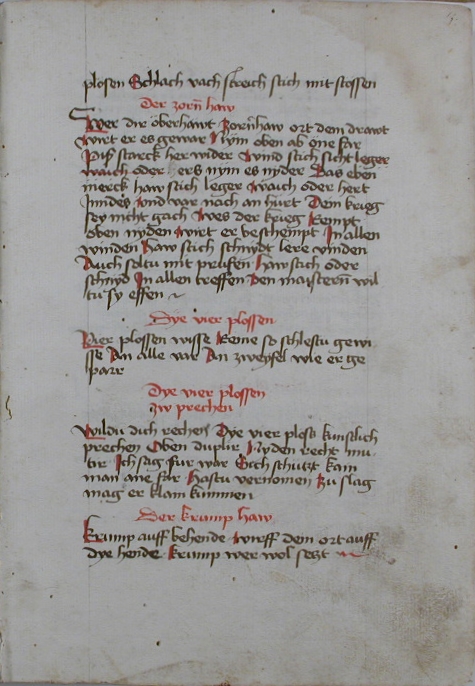 plosen Schlach vach streich stich mit stossen
Der zorn haw
Wer dir oberhawt Zornhaw ort dem drawt
wirt er es gewar Nym oben ab one far
Piß starck her wider wind stich sicht leger
waich oder hert nym es nyder Das eben
merck haw stich leger waich oder hert
Inndes vnd var nach an hurt Dem krieg
sey nicht gach wes der krieg Rempt
oben nyden wirt er beschempt In allen
winden haw stich schnydt lere vinden
Auch soltu mit prufen haw stich oder
schnyd In allen treffen den maistern wil
tu sy effen
Dye vier plossen
Vier plossen wisse Reme so schlestu gewi
sse An alle var An zweyfel wie er ge
parr
Dye vier plossen
zw prechen
Wildu dich rechen Dye vier ploss kunstlich
prechen Oben duplir Nyden recht mu
tir Ich sag fur war Sich schutzt kain
man ane far Hastu vernomen Zu slag
mag er klain kummen
Der krump haw
Krump auff behende wirff dem ort auff
dye hende Krump wer wol setzt